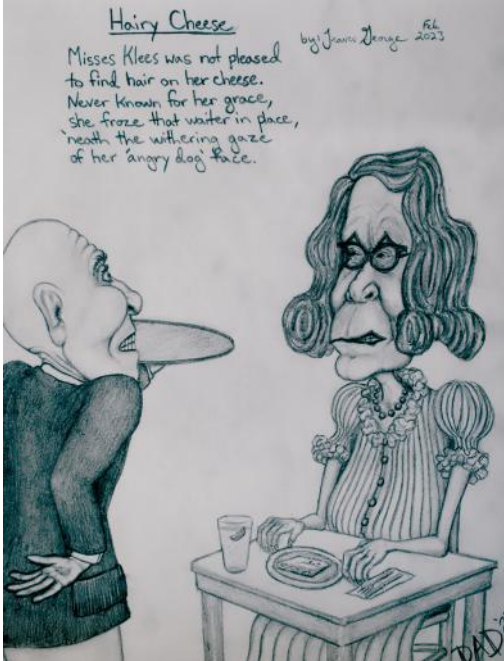 Hairy Cheese
by: Travis George Feb 2023
Misses Klees was not pleased
to find hair on her cheese.
Never known for her grace,
she froze that waiter in place,
'neath the withering gaze
of her 'angry dog' face.
DAD